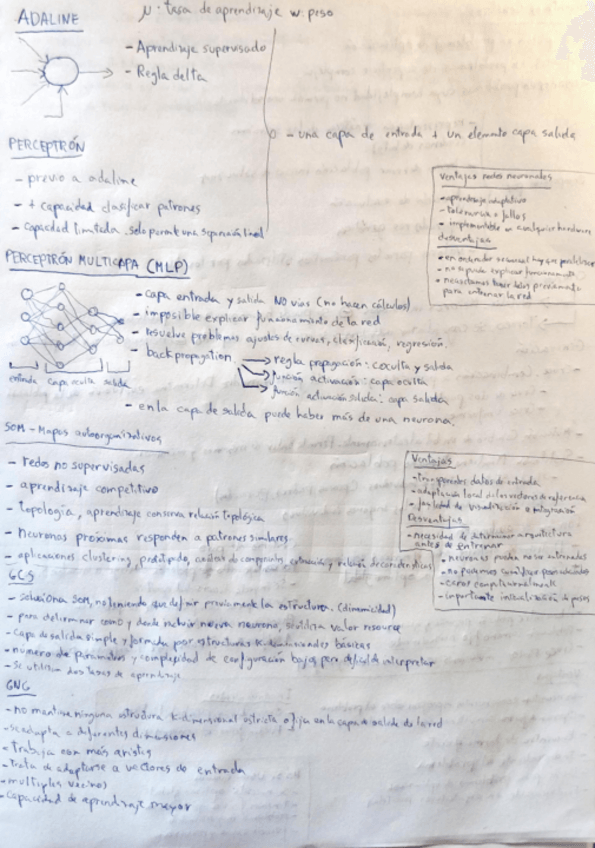 ADALINE
μ: tasa de aprendizaje w: peso
- Aprendizaje supervisado
- Regla delta
- una capa de entrada + un elemento capa salida
PERCEPTRÓN
- previo a adaline
- + capacidad clasificar patrones
- capacidad limitada. solo permite una separación lineal
Ventajas redes neuronales
- aprendizaje adaptativo
- tolerancia a fallos
- implementable en cualquier hardware
desventajas
- en ordenador secuencial hay que
- no se puede explicar funcionamiento
- necesitamos tener datos previamente
para entrenar la red
PERCEPTRÓN MULTICAPA (MLP)
entrada capa oculta salida
- capa entrada y salida NO vías (no hacen cálculos)
- imposible explicar funcionamiento de la red
- resuelve problemas ajustes de curvas, clasificación, regresión.
- backpropagation
regla propagación: oculta y salida
función activación: capa oculta
función activación salida: capa salida
- en la capa de salida puede haber más de una neurona.
SOM - Mapas autoorganizativos
- redes no supervisadas
- aprendizaje competitivo
- topología, aprendizaje conserva relación topológica
- Neuronas próximas responden a patrones similares.
- aplicaciones clustering, prototipado, análisis de componentes, extracción y relación de características
Ventajas
- transparentes datos de entrada
- adaptación local de los vectores de referencia
- facilidad de visualización e integración
Desventajas
- necesidad de determinar arquitectura
antes de entrenar
- neuronas pueden no ser entrenadas
- caros computacionalmente
- importante inicialización de pesos
GCS
- soluciona SOM, no teniendo que definir previamente la estructura. (dinamicidad)
- para determinar como y donde incluir nueva neurona, se utiliza valor resource
- Capa de salida simple y formada por estructuras k-dimensionales básicas
- número de parámetros y complejidad de configuración bajos pero difícil de interpretar
- Se utilizan dos tasas de aprendizaje
GNG
- no mantiene ninguna estructura k-dimensional estricta o fija en la capa de salida de la red
- se adapta a diferentes dimensiones
- trabaja con más aristas
- trata de adaptarse a vectores de entrada
- multiples vecinos
- capacidad de aprendizaje mayor